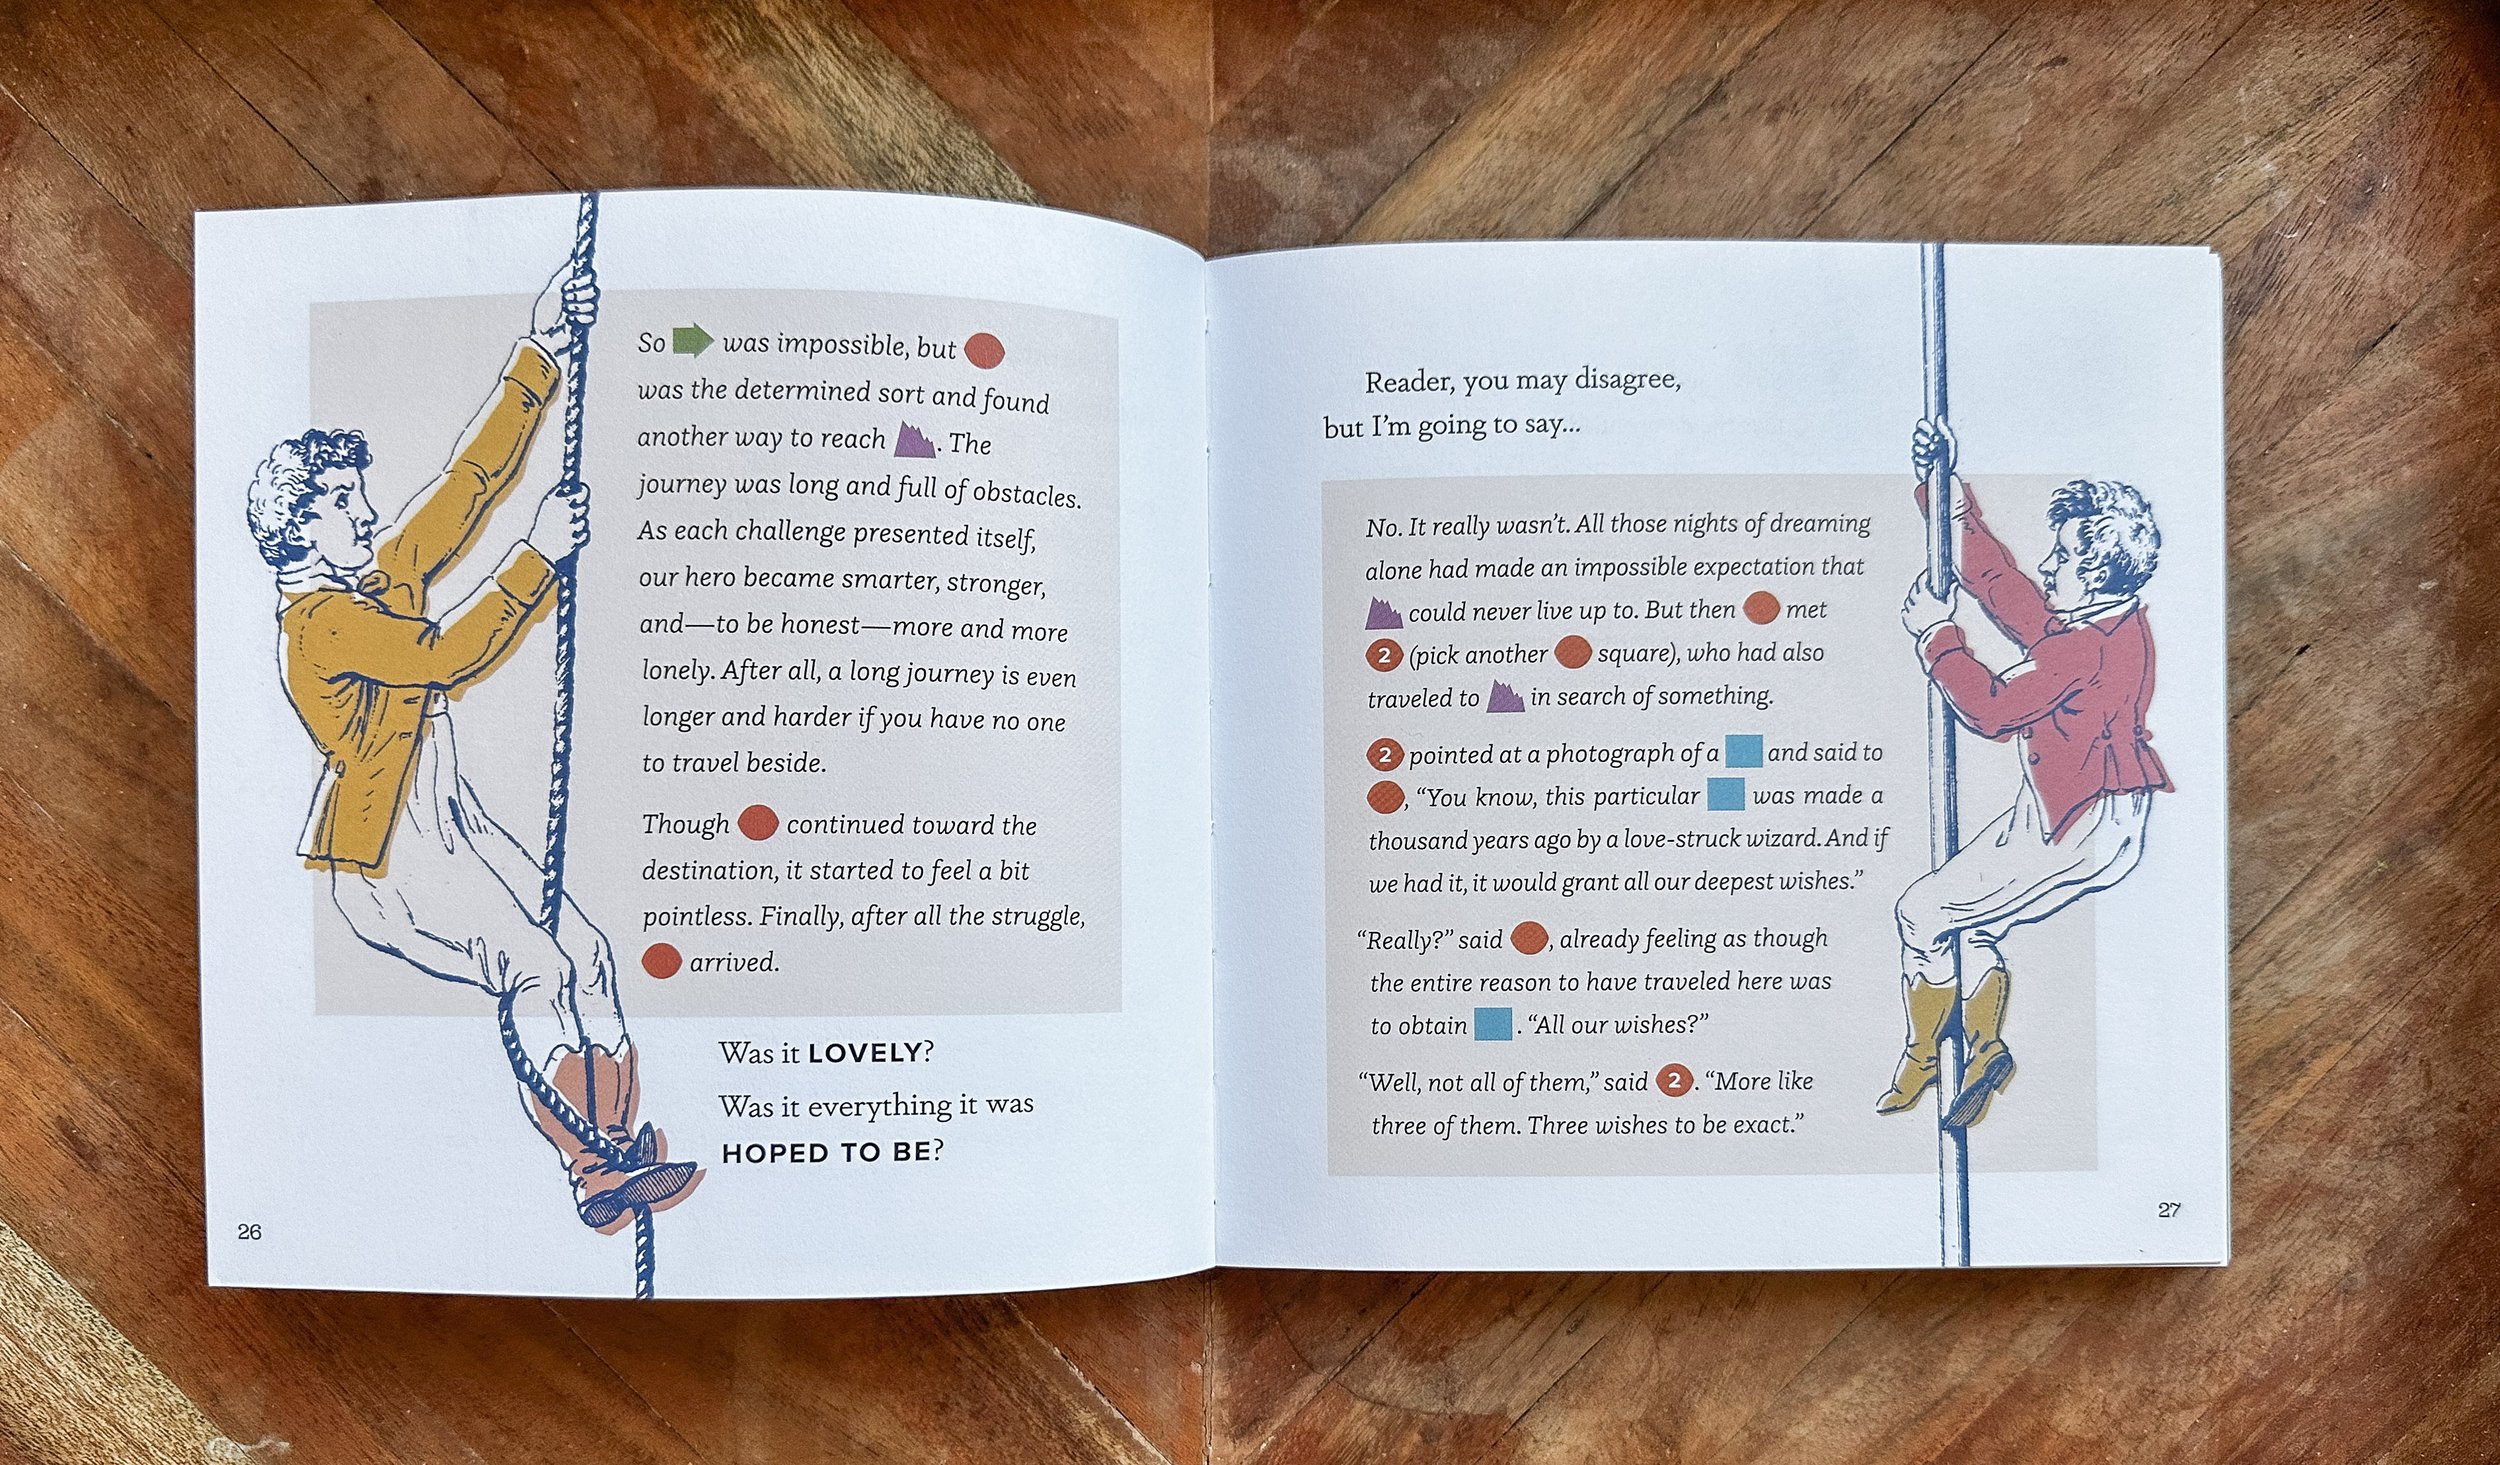 So was impossible, but
was the determined sort and found
another way to reach . The
journey was long and full of obstacles.
As each challenge presented itself,
our hero became smarter, stronger,
and—to be honest—more and more
lonely. After all, a long journey is even
longer and harder if you have no one
to travel beside.
Though continued toward the
destination, it started to feel a bit
pointless. Finally, after all the struggle,
arrived.
Was it LOVELY?
Was it everything it was
HOPED TO BE?
26
Reader, you may disagree,
but I'm going to say...
No. It really wasn't. All those nights of dreaming
alone had made an impossible expectation that
could never live up to. But then met
2 (pick another square), who had also
traveled to in search of something.
2 pointed at a photograph of a and said to
, “You know, this particular was made a
thousand years ago by a love-struck wizard. And if
we had it, it would grant all our deepest wishes.”
“Really?” said , already feeling as though
the entire reason to have traveled here was
to obtain . “All our wishes?”
“Well, not all of them,” said 2. “More like
three of them. Three wishes to be exact.”
27